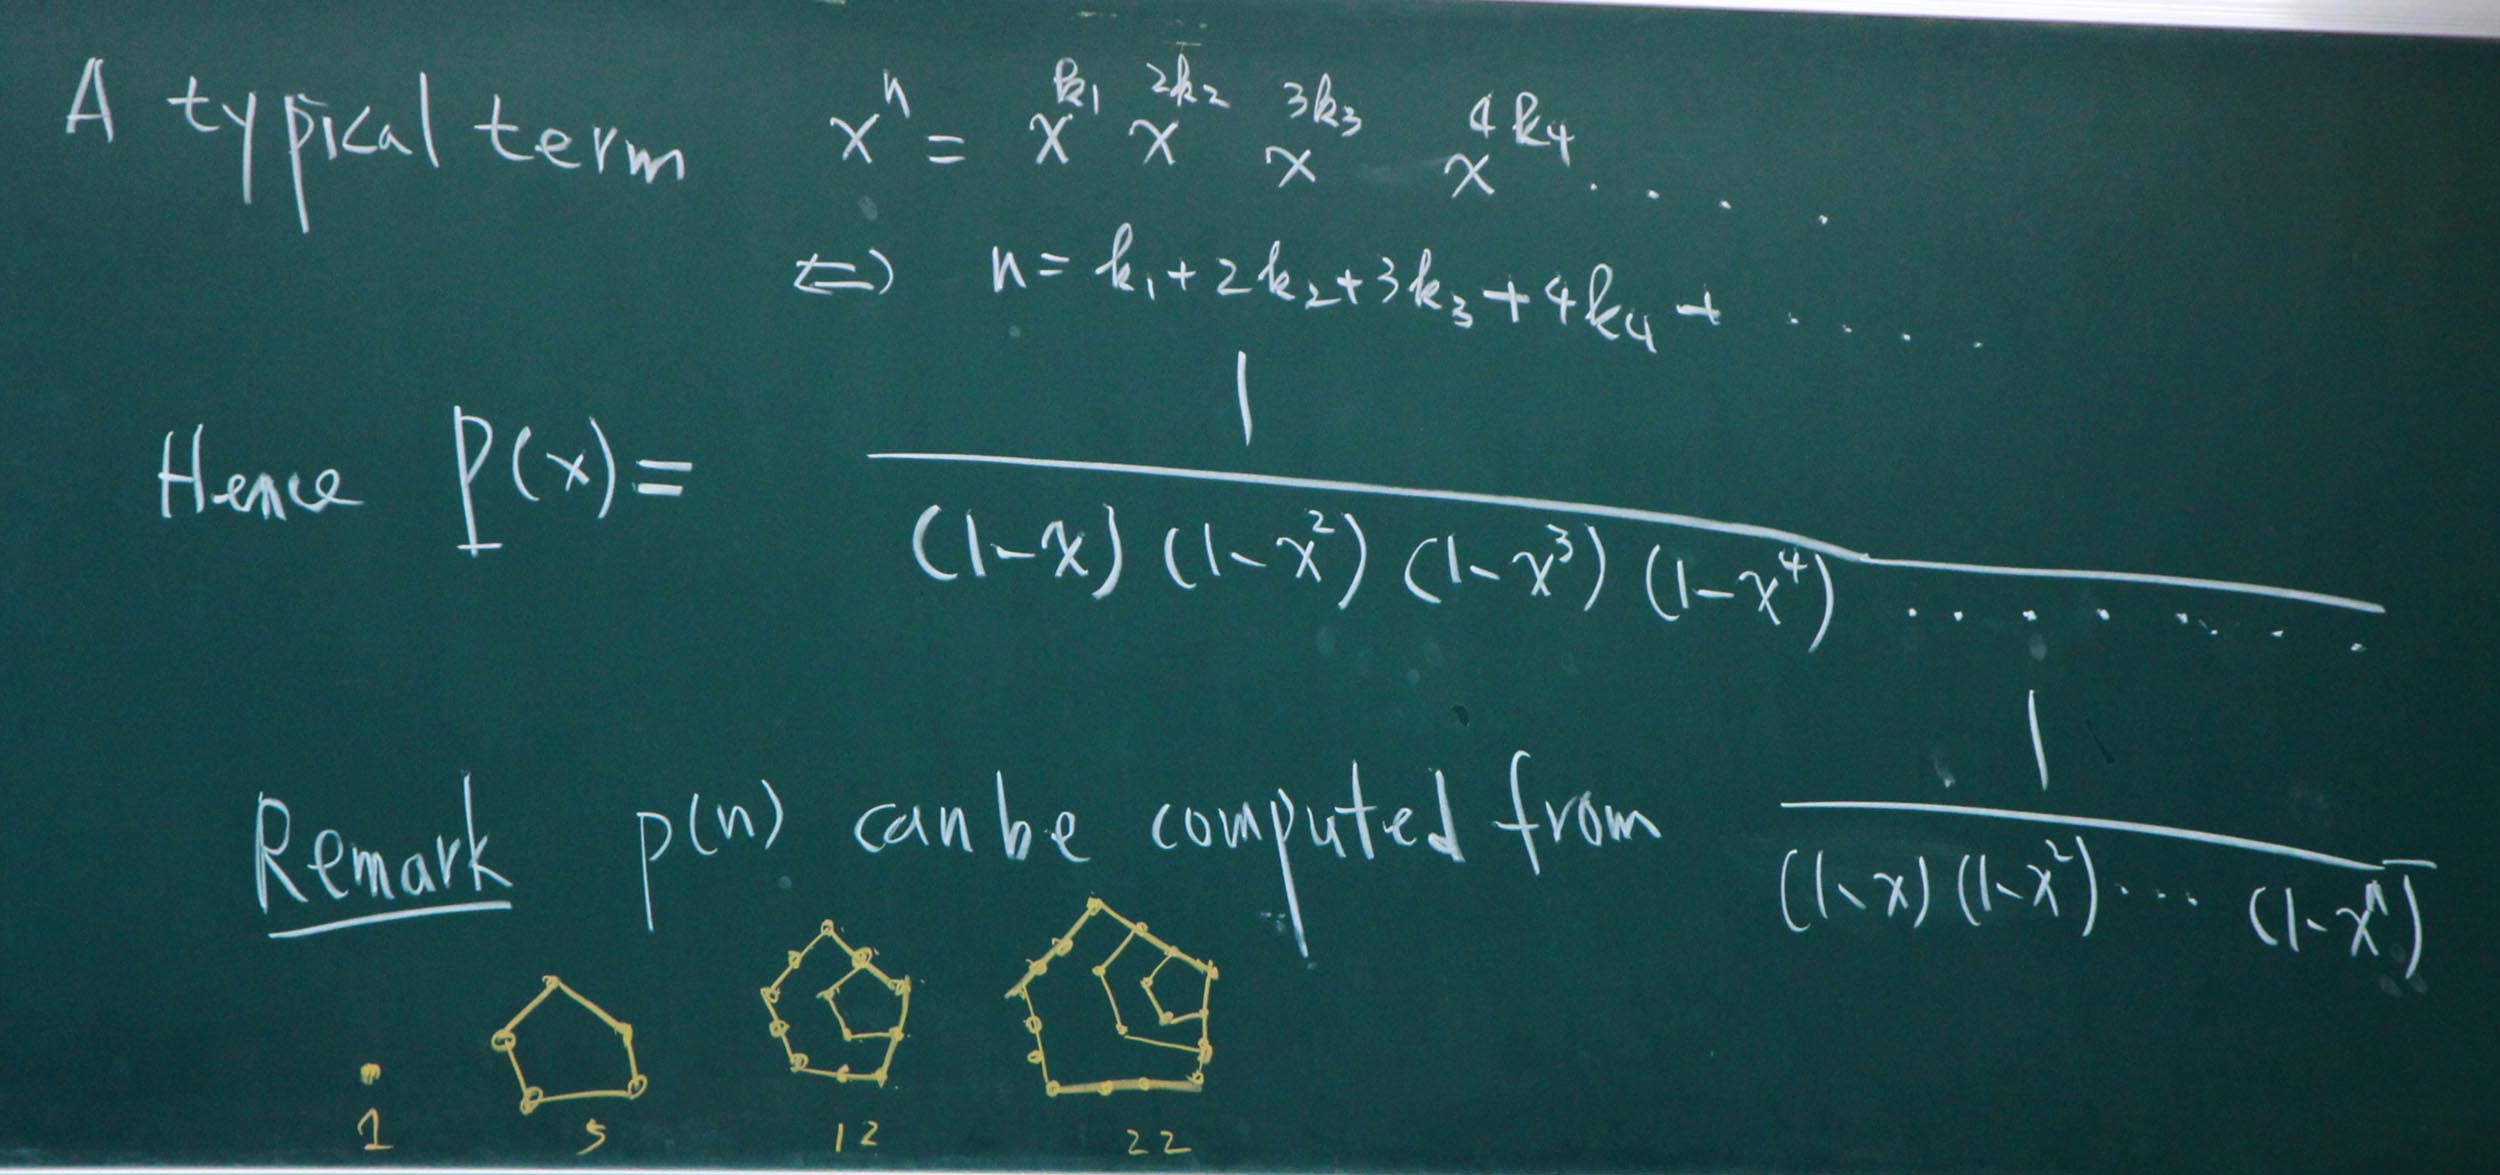 A typical term xⁿ = x^k₁ x^2k₂ x^3k₃ x^4k₄ . . . .
⇔ n = k₁ + 2k₂ + 3k₃ + 4k₄ + . . . .
Hence P(x) = 1 / (1-x) (1-x²) (1-x³) (1-x⁴) . . . . . . .
Remark p(n) can be computed from 1 / (1-x) (1-x²) ... (1-xⁿ)
1 5 12 22